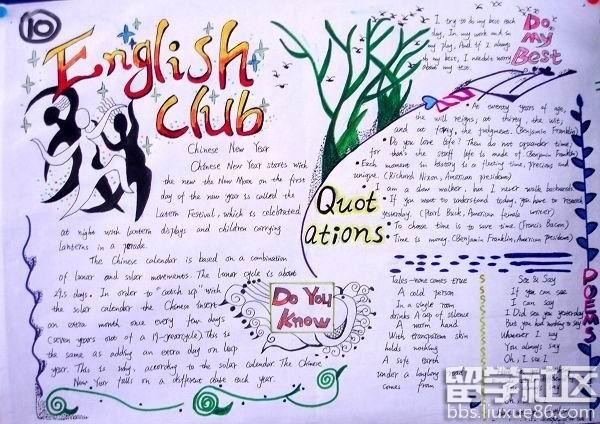 10
English
Club
Chinese New Year
Chinese New Year starts with
the new the New Moon on the first
day of the new year is called the
Latern Festival, which is celebrated
at night with lantern displays and children carrying
lanterns in a parade.
The Chinese calendar is based on a combination
of lunar and solar movements. The lunar cycle is about
29.5 days. In order to "catch up" with
the solar calendar the Chinese insert
an extra month once every few days
(seven years out of a 19-yearcycle). This is
the same as adding an extra day on leap
year. This is why, according to the solar calendar. The Chinese
New Year falls on a different date each year.
Do You
Know
I try to do my best each
day, In my work and in
my play, And if I always
do my best, I needn't worry
about my test.
Do
My
Best
Quot
ations:
At twenty years of age,
the will reigns; at thirty, the wit;
and at forty, the judgment. (Benjamin Franklin)
Do you love life? Then do not squander time;
for that's the stuff life is made of. (Benjamin Franklin)
Each moment in history is a fleeting time, precious and
unique. (Richard Nixon, American president)
I am a slow walker, but I never walk backwards.
If you want to understand today, you have to research
yesterday. (Pearl Buck, American female writer)
To choose time is to save time. (Francis Bacon)
Time is money. (Benjamin Franklin, American president)
Tales-none comes true
A cold person
In a single room
drinks A cup of silence
A warm hand
With transparent skin
holds nothing
A safe earth
under a laughing
comes from
See & Say
If you can see
I can say
I Did see you yesterday
But you had nothing to say
Whatever I say
You always say
Oh, I see!
POEMS
留学社区
bbs.liuxue86.com